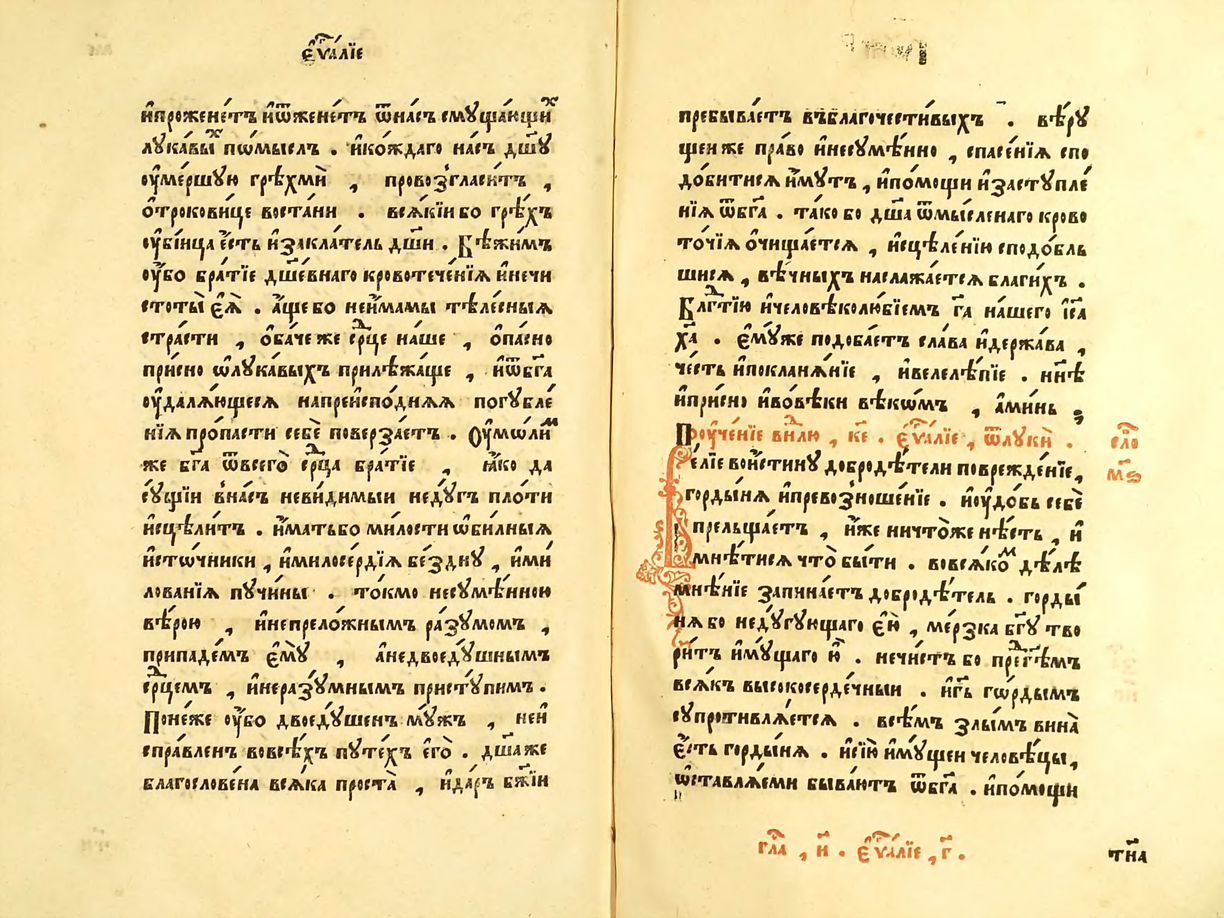 є҆ѵⷢ҇алїе
и҆проженетъ и҆ѿженетъ ѿнасъ смꙋщающиⷯ
лꙋкавыⷯ помыслъ . и҆коегождо насъ дш҃ꙋ
оу҆мершꙋю грѣхми , провозгласитъ ,
ѻ҆троковице востани . всѧкїи бо грѣхъ
оу҆бїица є҆сть и҆заклатель дш҃и . Бѣжимъ
оу҆бо братїе дш҃евнаго кровотеченїѧ и҆нечи
стоты є҆ѧ . а҆ще бо неи҆мамы тѣлесныѧ
страсти , ѻ҆баче же срⷣце наше , ѻ҆пасно
присно ѡ҆лꙋкавыхъ прилѣжаще , и҆ѿбг҃а
оу҆далѧющесѧ напреисподнѧѧ погꙋбле
нїѧ пропасти себе поверзаетъ . Оу҆молиⷨ
же бг҃а ѿвсего срⷣца братїе , ꙗ҆ко да
сꙋщїи внасъ невидимыи недꙋгъ плоти
и҆сцѣлитъ . и҆матьбо милости ѡ҆билныѧ
и҆сточники , и҆милосердїѧ безднꙋ , и҆ми
лованїѧ пꙋчины . токмо несꙋмѣнною
вѣрою , и҆непреложнымъ разꙋмомъ ,
припадемъ є҆мꙋ , а҆недвоедꙋшнымъ
срⷣцемъ , и҆неразꙋмнымъ пристꙋпимъ .
Понеже оу҆бо двоедꙋшенъ мꙋжъ , неи
справленъ вовсѣхъ пꙋтехъ є҆го . дш҃а же
благословена всѧка проста , и҆даръ бж҃їи
пребываетъ въблагочестивыхъ . вѣрꙋ
щеи же право и҆несꙋмѣнно , спасенїѧ спо
добитисѧ и҆мꙋтъ , и҆помощи и҆застꙋпле
нїѧ ѿбг҃а . тако бо дш҃а ѿмысленаго крово
точїѧ ѻ҆чищаетсѧ , и҆сцѣленїю сподобль
шисѧ , вѣчныхъ наслажаетсѧ благихъ .
Блгⷣтїю и҆человѣколюбїемъ гⷭ҇а нашего і҆са
хⷭ҇а . є҆мꙋже подобаетъ слава и҆держава ,
честь и҆покланѧнїе , и҆велелѣпїе . нн҃ѣ
и҆присно и҆вовѣки вѣкѡмъ , а҆минь
Пооу҆ченїе внⷣлю , к҃е . є҆ѵⷢ҇алїе , ѿлꙋки .
слⷪ҇о
м҃ѕ
Велїе воистинꙋ добродѣтели поврежденїе,
гордынѧ и҆превозношенїе . и҆оу҆добь себе
прельщаетъ , и҆же ничтоже нѣсть , и҆
мнѣтисѧ что быти . вовсѧкоⷨ дѣлѣ
мнѣнїе запинаетъ добродѣтель . горды
нѧ бо недꙋгꙋющаго є҆ю , мерзка бг҃ꙋ тво
ритъ и҆мꙋщаго ю҆ . нечистъ бо пⷭ҇регⷣѣмъ
всѧкъ высокосердечныи . и҆гⷭ҇ь гордымъ
сꙋпротивлѧетсѧ . всѣмъ злымъ вина
є҆сть гордынѧ . и҆сїю и҆мꙋщеи человѣцы,
ѡ҆ставлѧеми бываютъ ѿбг҃а . и҆помощи
глⷡ҇а , и҃ . є҆ѵⷢ҇алїе , г҃ .
тн҃а